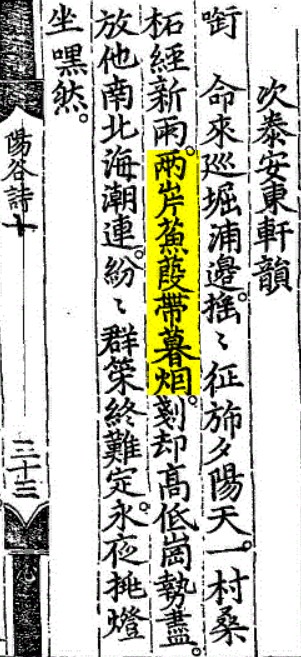 次泰安東軒韻
銜　命來巡堀浦邊。搖〻征旆夕陽天。一村桑
柘經新雨。兩岸蒹葭帶暮烟。剗却高低崗勢盡。
放他南北海潮連。紛〻群策終難定。永夜挑燈
坐嘿然。
陽谷詩十　三十三